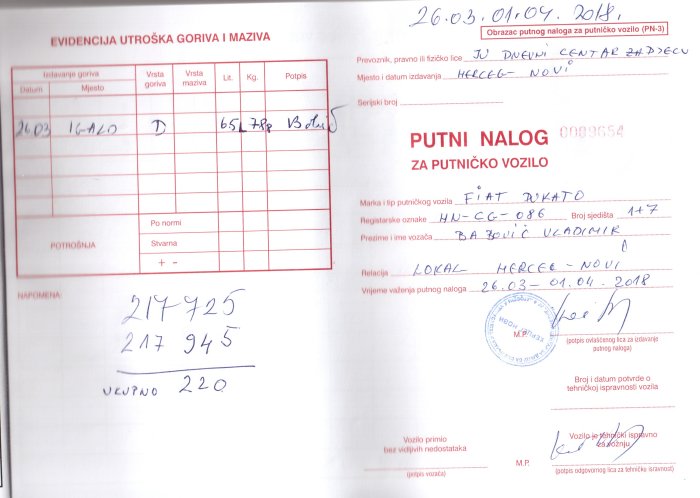 EVIDENCIJA UTROŠKA GORIVA I MAZIVA
Izdavanje goriva
Datum
Mjesto
Vrsta goriva
Vrsta maziva
Lit.
Kg.
Potpis
26.03 IGALO D 65L
POTROŠNJA
Po normi
Stvarna
+ -
NAPOMENA:
217725
217 945
UKUPNO 220
26.03. 01.04. 2018.
Obrazac putnog naloga za putničko vozilo (PN-3)
Prevoznik, pravno ili fizičko lice JU DNEVNI CENTAR ZA DJECU
Mjesto i datum izdavanja HERCEG-NOVI
Serijski broj
PUTNI NALOG 0089654
ZA PUTNIČKO VOZILO
Marka i tip putničkog vozila FIAT DUKATO
Registarske oznake HN-CG-086 Broj sjedišta 1+7
Prezime i ime vozača VLADIMIR
Relacija LOKAL HERCEG-NOVI
Vrijeme važenja putnog naloga 26.03-01.04.2018
M.P.
(potpis ovlašćenog lica za izdavanje
putnog naloga)
Broj i datum potvrde o
tehničkoj ispravnosti vozila
Vozilo primio
bez vidljivih nedostataka
Vozilo je tehnički ispravno
za vožnju
(potpis vozača)
M.P.
(potpis odgovornog lica za tehničke isravnost)